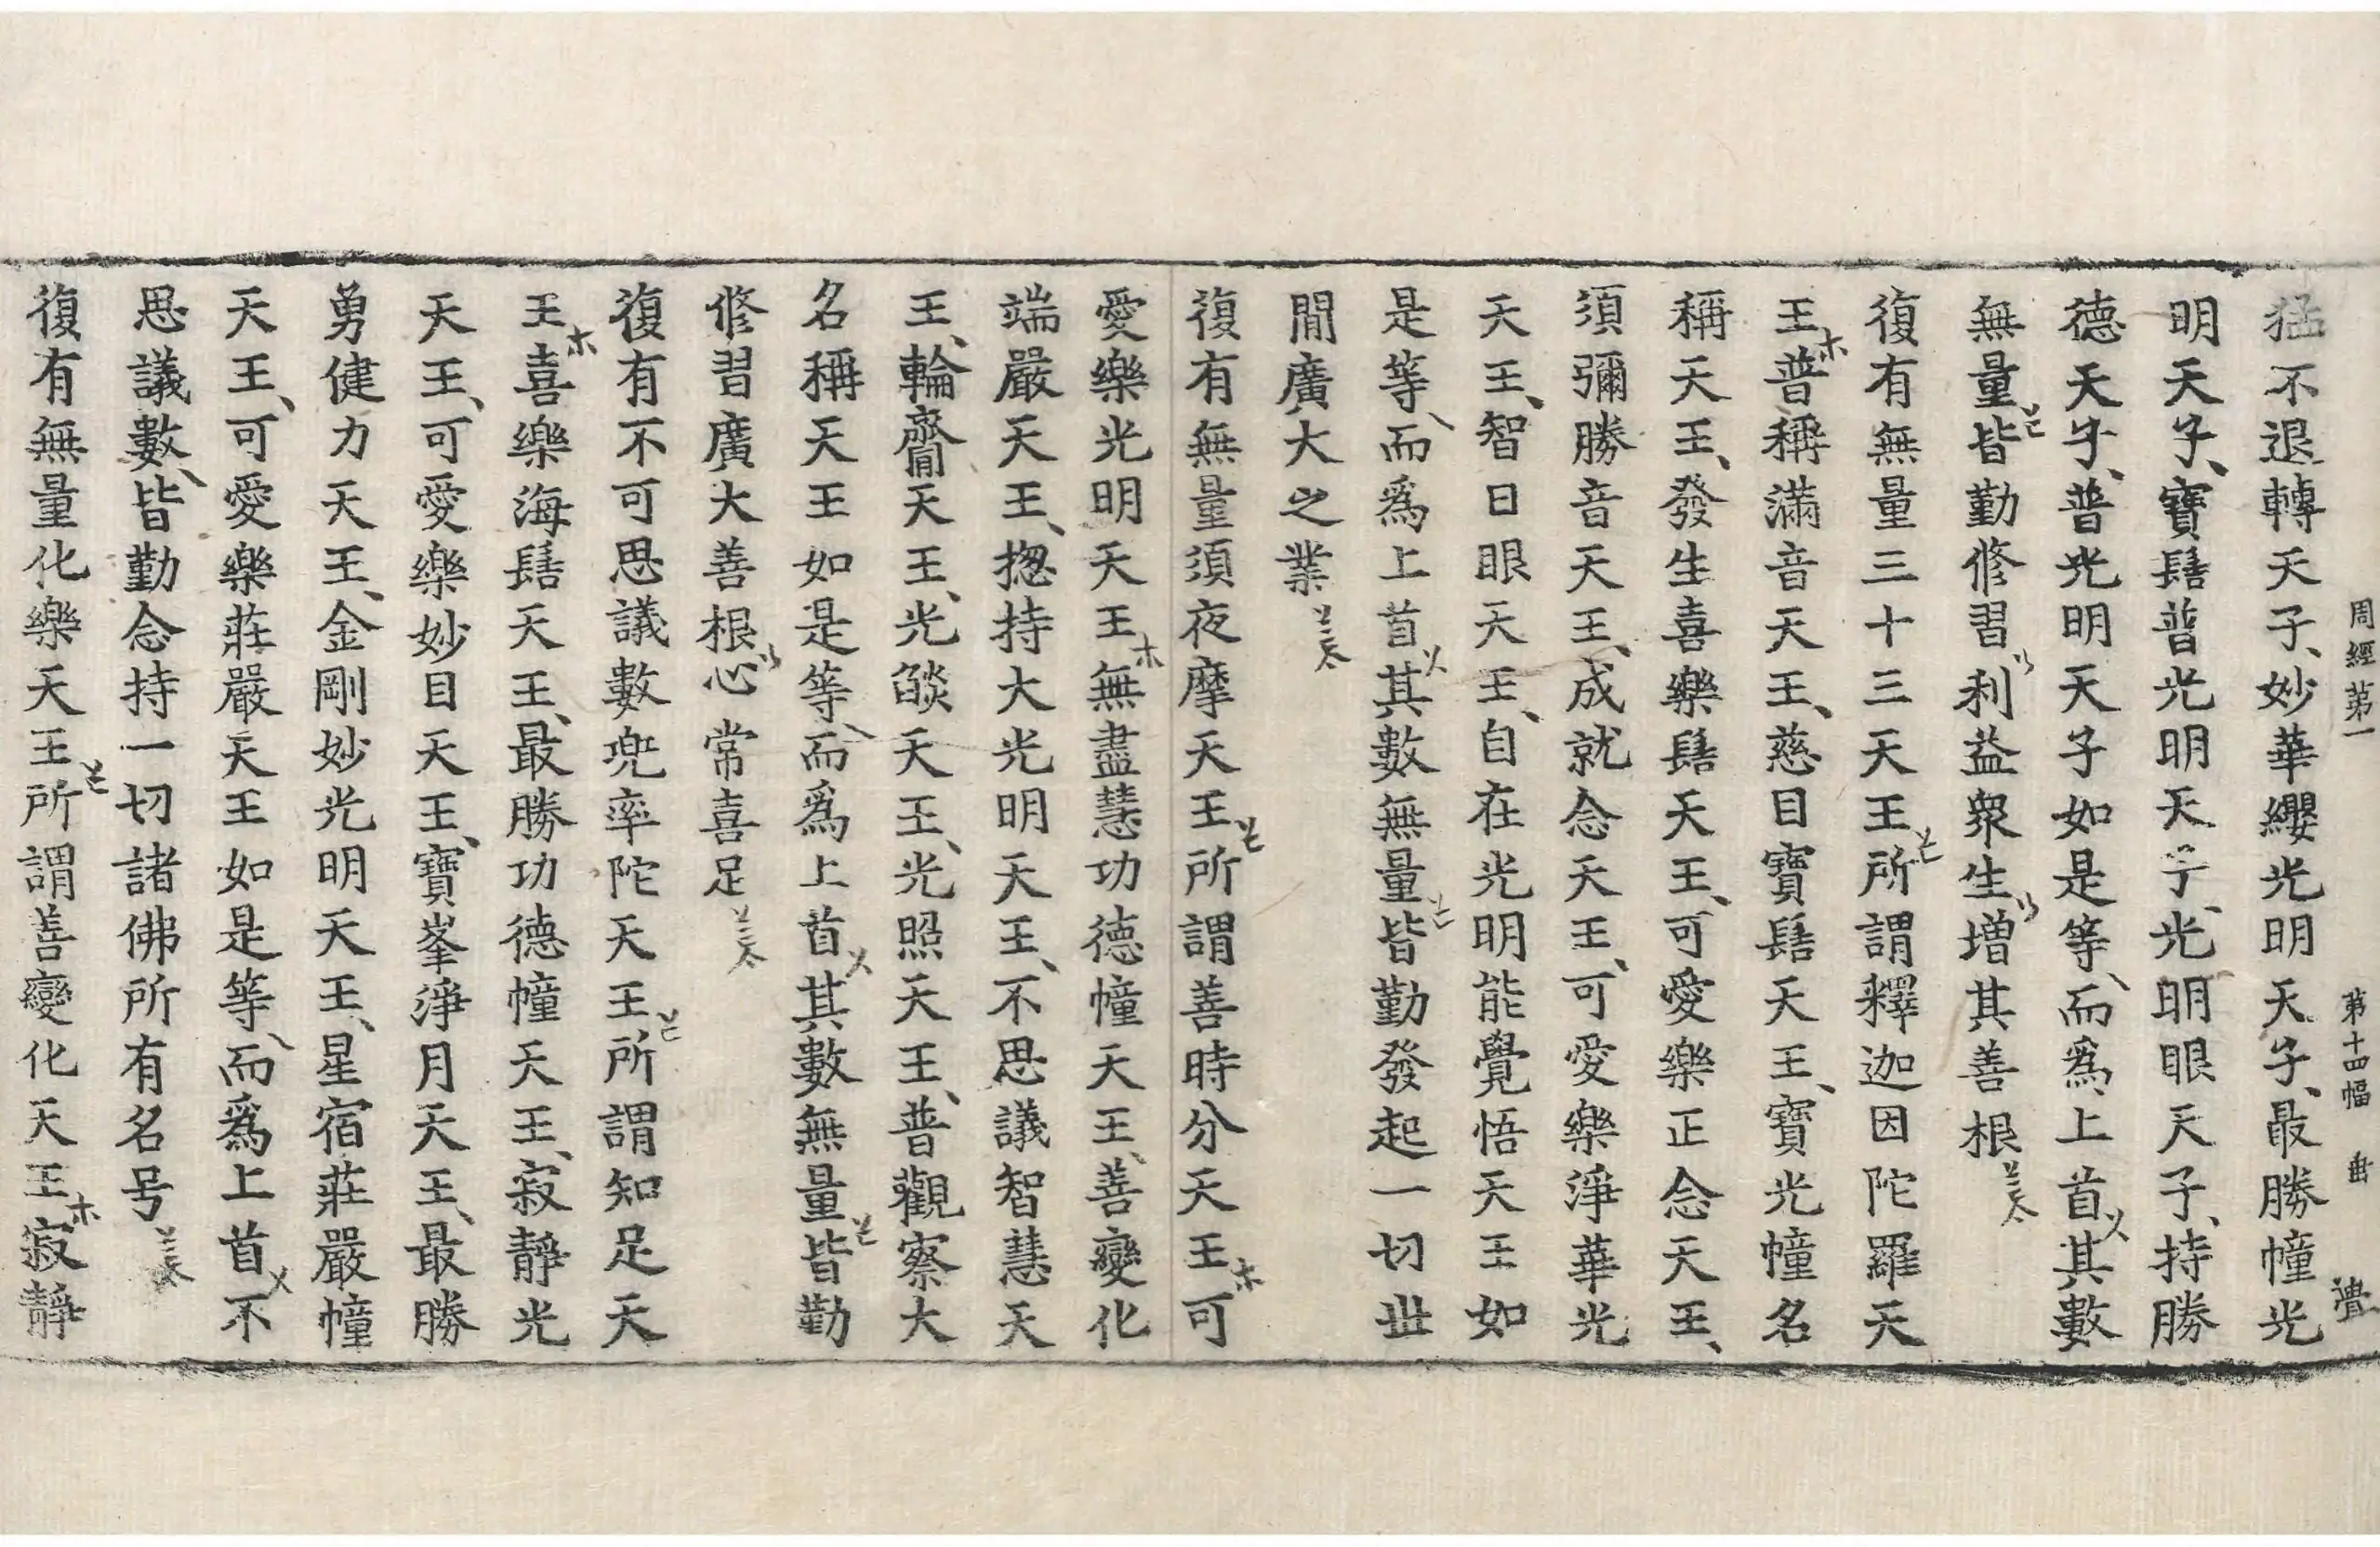 周經第一 第十四幅
猛不退轉天子、妙華纓光明天子、最勝幢光
明天子、寶髻普光明天子、光明眼天子、持勝
德天子、普光明天子如是等、而爲上首其數
無量皆勤修習利益衆生增其善根
復有無量三十三天王所謂釋迦因陀羅天
王普稱滿音天王、慈目寶髻天王、寶光幢名
稱天王、發生喜樂髻天王、可愛樂正念天王、
須彌勝音天王、成就念天王、可愛樂淨華光
天王、智日眼天王、自在光明能覺悟天王如
是等、而爲上首其數無量皆勤發起一切世
閒廣大之業
復有無量須夜摩天王所謂善時分天王可
愛樂光明天王無盡慧功德幢天王、善變化
端嚴天王、揔持大光明天王、不思議智慧天
王、輪齎天王、光燄天王、光照天王、普觀察大
名稱天王如是等、而爲上首其數無量皆勤
修習廣大善根心常喜足
復有不可思議數兜率陀天王所謂知足天
王喜樂海髻天王、最勝功德幢天王、寂靜光
天王、可愛樂妙目天王、寶峯淨月天王、最勝
勇健力天王、金剛妙光明天王、星宿莊嚴幢
天王、可愛樂莊嚴天王如是等、而爲上首不
思議數、皆勤念持一切諸佛所有名号
復有無量化樂天王所謂善變化天王寂靜